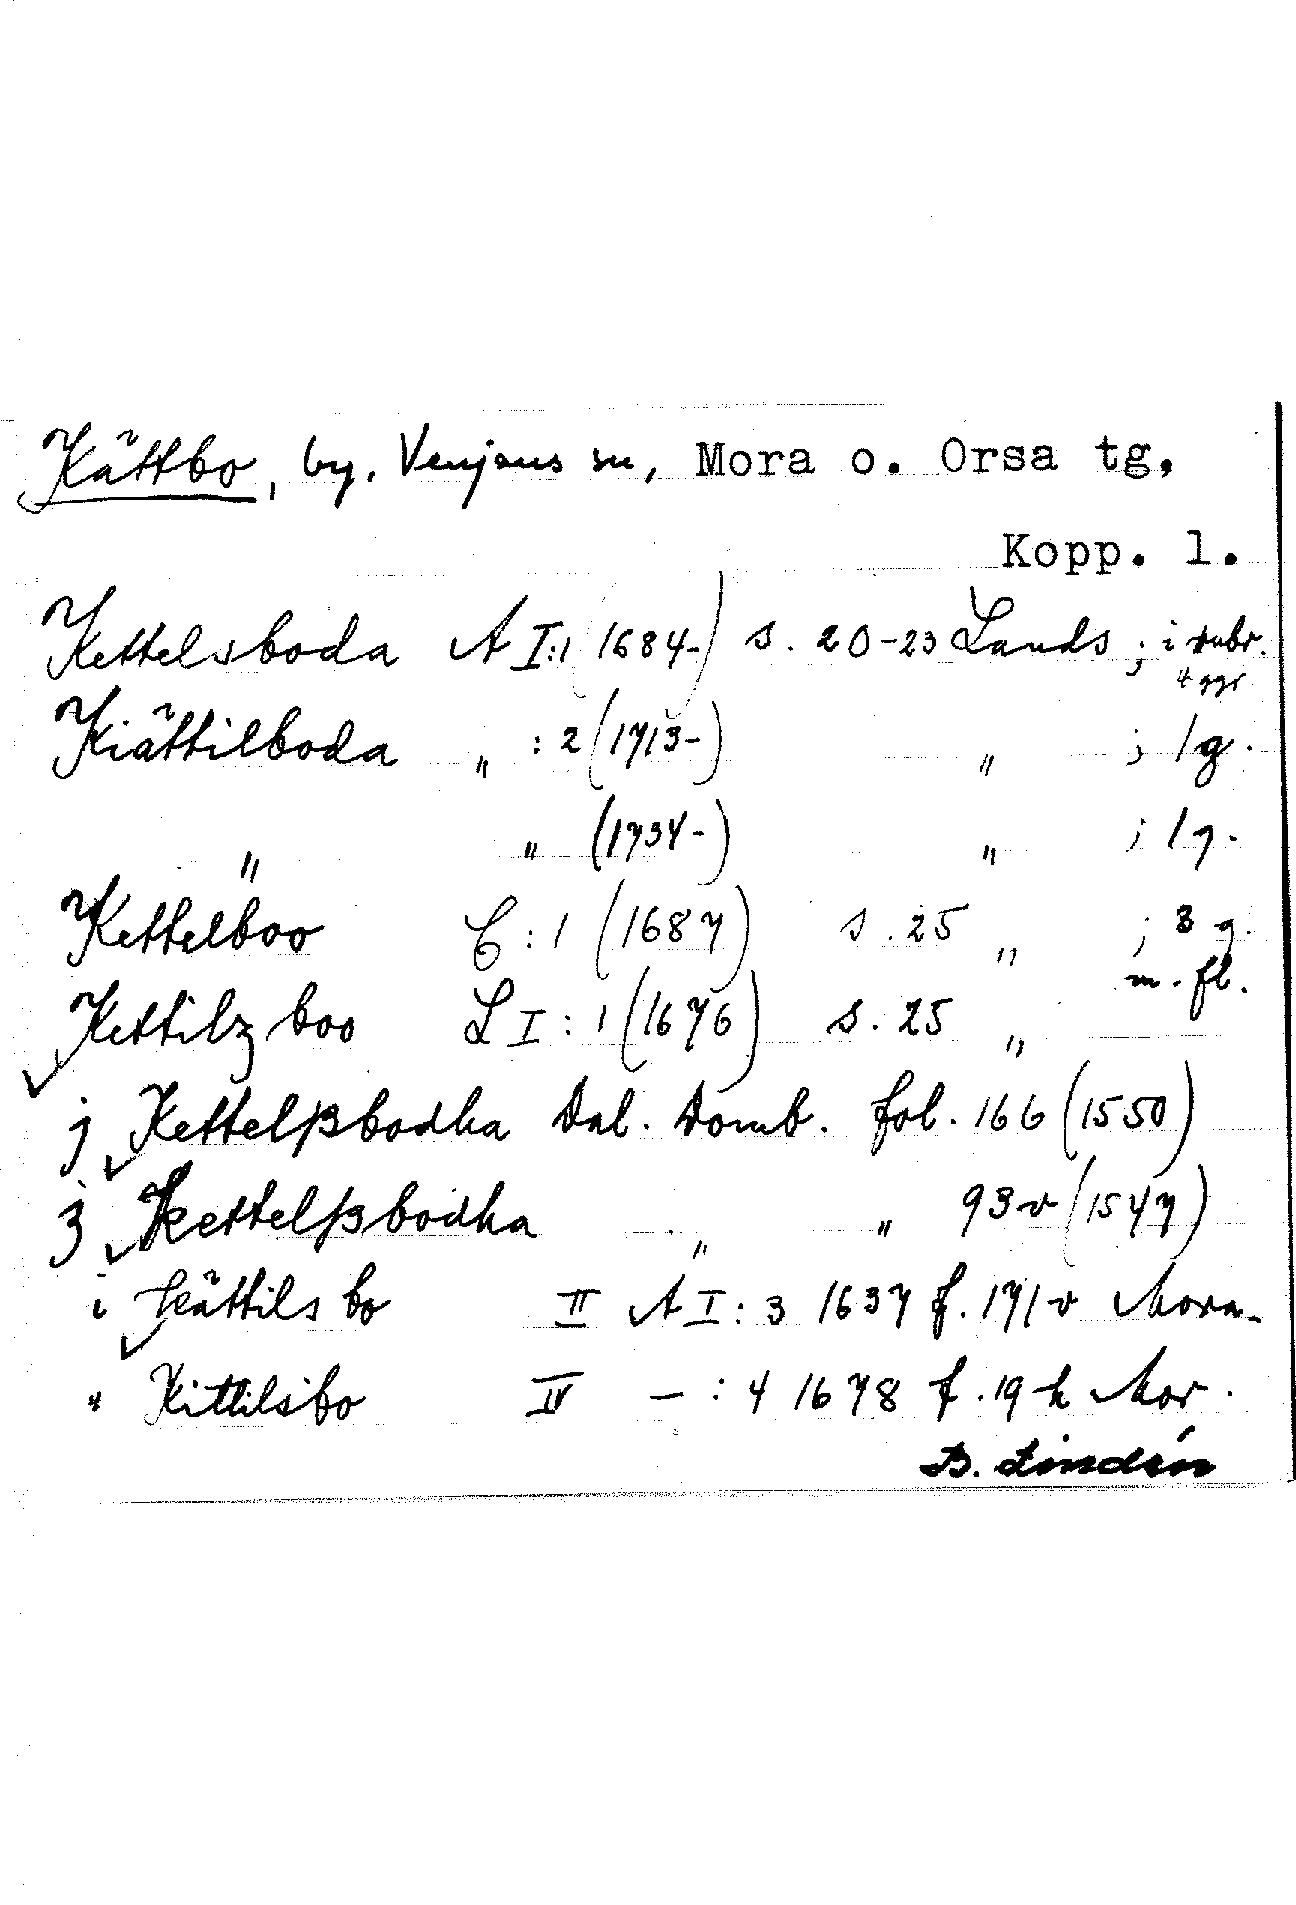 Kättbo, by, Venjans sn, Mora o. Orsa tg,
Kopp. l.
Kettelsboda A I:1 (1684-) s. 20-23 Lands ; i rubr.
4 ggr
Kiättilboda " :2 (1713-) " ; 1 g.
" " (1734-) " ; 1 g.
Kettelboo C:1 (1687) s. 25 " ; 3 g.
m. fl.
Kettilz boo L I:1 (1676) s. 25 "
j Kettelßbodha Dal. Domb. fol. 166 (1550)
j Kettelßbodha " " 93 v (1547)
i Kättils bo II A I:3 1637 f. 171 v Mora-
" Kittilsbo IV — :4 1678 f. 19 h Mor.
B. Lindén